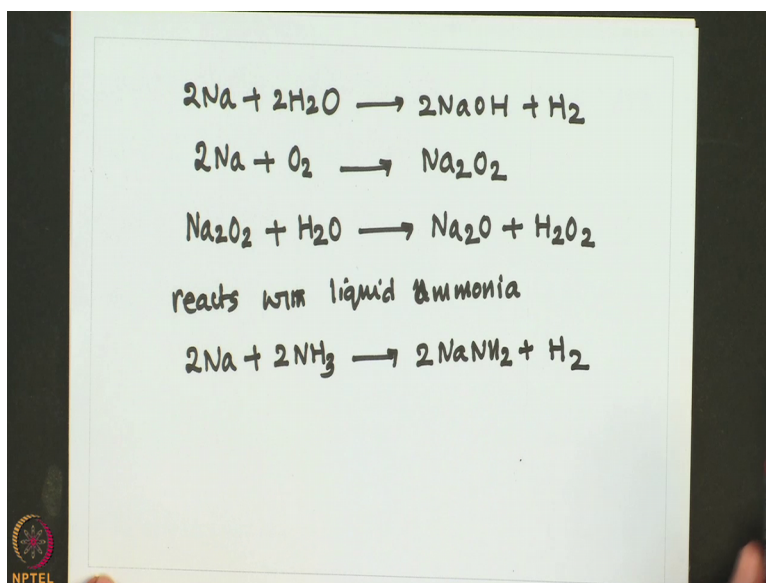 2Na + 2H2O ⟶ 2NaOH + H2
2Na + O2 ⟶ Na2O2
Na2O2 + H2O ⟶ Na2O + H2O2
reacts with liquid ammonia
2Na + 2NH3 ⟶ 2NaNH2 + H2
NPTEL